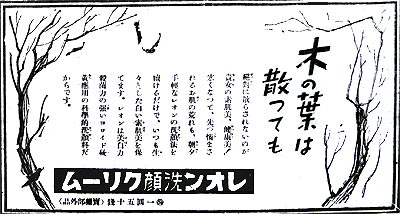 木の葉は
散つても
絶對に散らされないのが
貴女の素肌美、健康美!
寒くなつて、先づ惱まさ
れるお肌の荒れも、朝夕
手輕なレオンの洗顏法を
續けるだけで、いつも生
々とした白い素肌美を保
てます。レオンは美白力
殺菌力の强いコロイド硫
黃應用の科學的洗顏料だ
からです。
レオン洗顏クリーム
一圓五十錢(賣藥部外品)